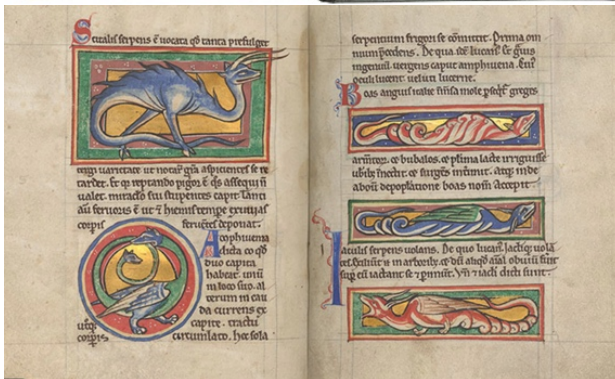 Scitalis serpens ẽ vocata qđ tanta prefulget
tergi varietate ut notaꝝ gr̃a aspicientes se re
tardet. Et qꝛ reptando pigrior ẽ q̃s assequi ñ
valet. miraclo sui stupentes capit. Tanti
aũ fervoris ẽ ut ⁊ hiemis tempe exuvias
corpis ferventis deponat.
Amphivena
dicta eo qđ
duo capita
habeat. unũ
in loco suo. al
terum in cau
da currens ex
utq; capite. tractu
corpis circumlato. hec sola
serpentum frigori se cõmittit. Prima om
nium p̃cedens. De qua
ingeminũ vergens caput amphivena. Eiuꝰ
oculi lucent veluti lucerne.
Boas anguis italie ĩmensa mole p̃seq̃t greges
armtoꝝ. et bubalos. et plima lacte irriguisse
ubib; innectit. et sugens intimit. atq; inde
aboum depopulatione boas nom̃ accepit.
Iaculus serpens volans. De quo lucanꝰ. Iactiq; vola
. Exiliunt ĩ arborib; et dũ aliqđ aĩal obviũ fuit
sup̃ eũ iactant se ⁊ pimunt. Vñ ⁊ iaculi dicti sunt.